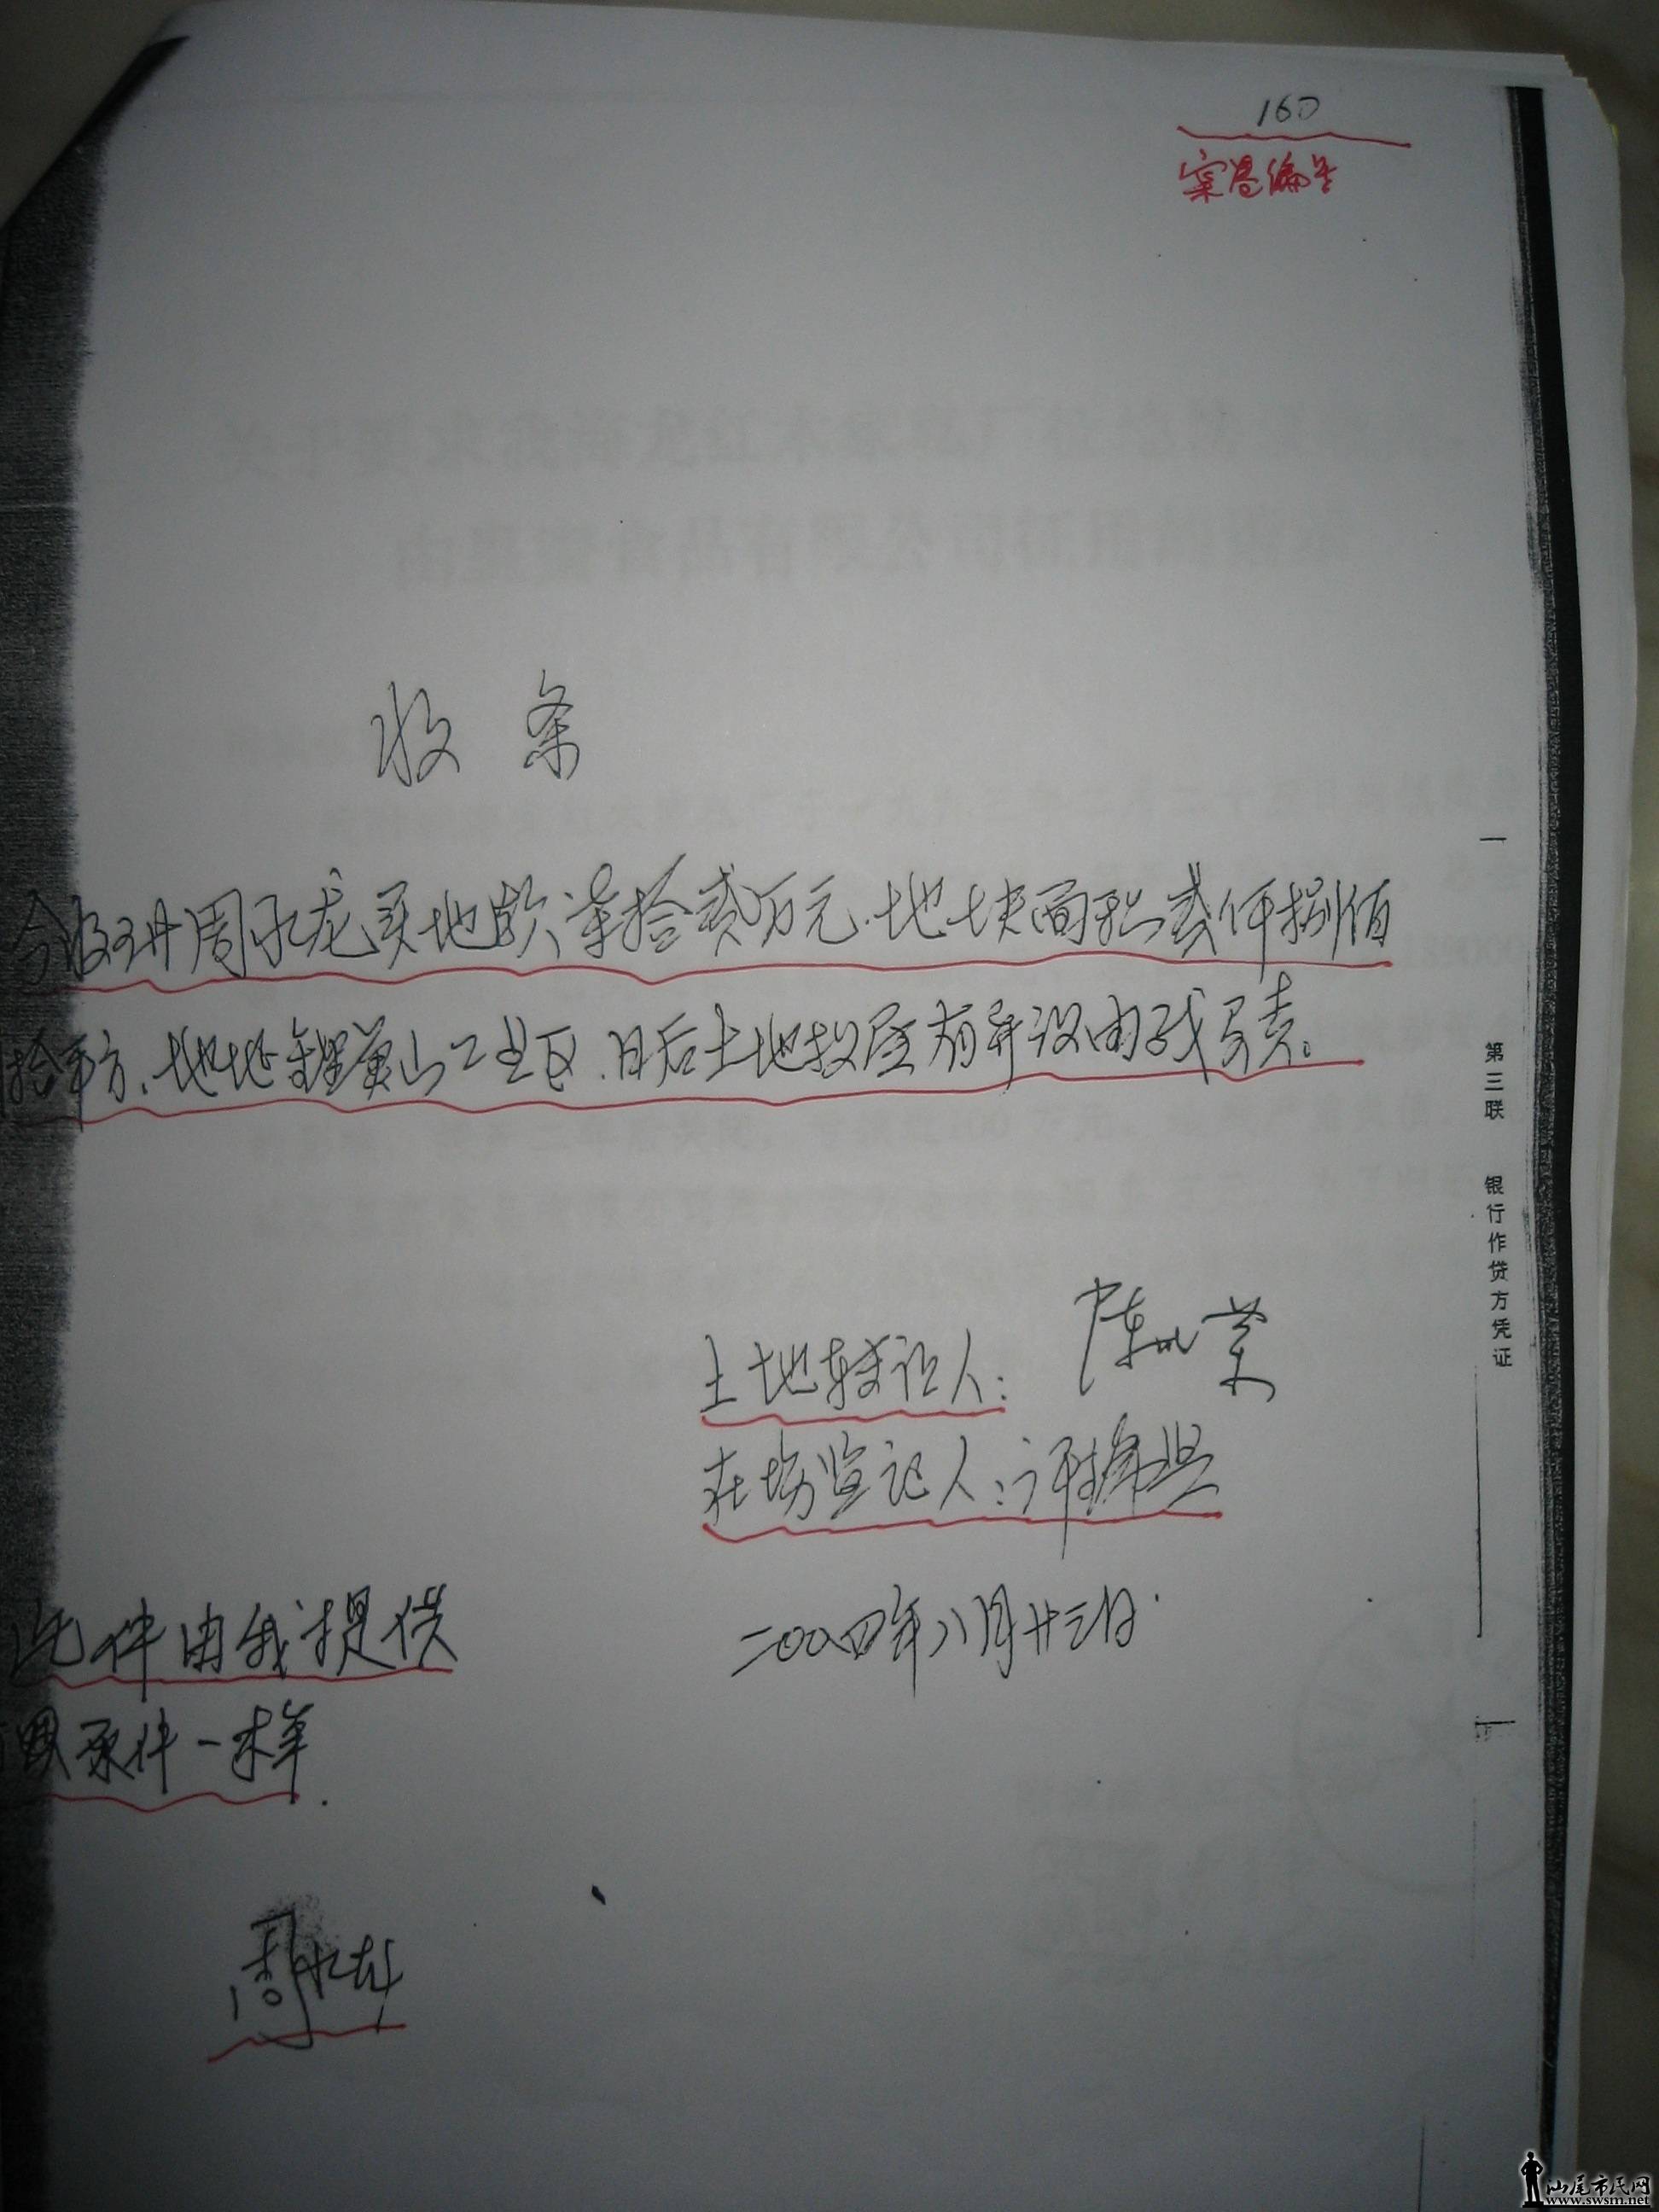 160
案卷编号
收条
今收到周永龙买地款 拾贰万元.地块面积贰仟捌佰
拾平方.地址 黄山工业区.日后土地投 有异议由我负责。
土地转让人:陈 业
在场监证人:许
二00四年八月廿三日.
此件由我提供
跟原件一样.
周永龙
第三联 银行作贷方凭证
汕尾市民网
www.swsm.net